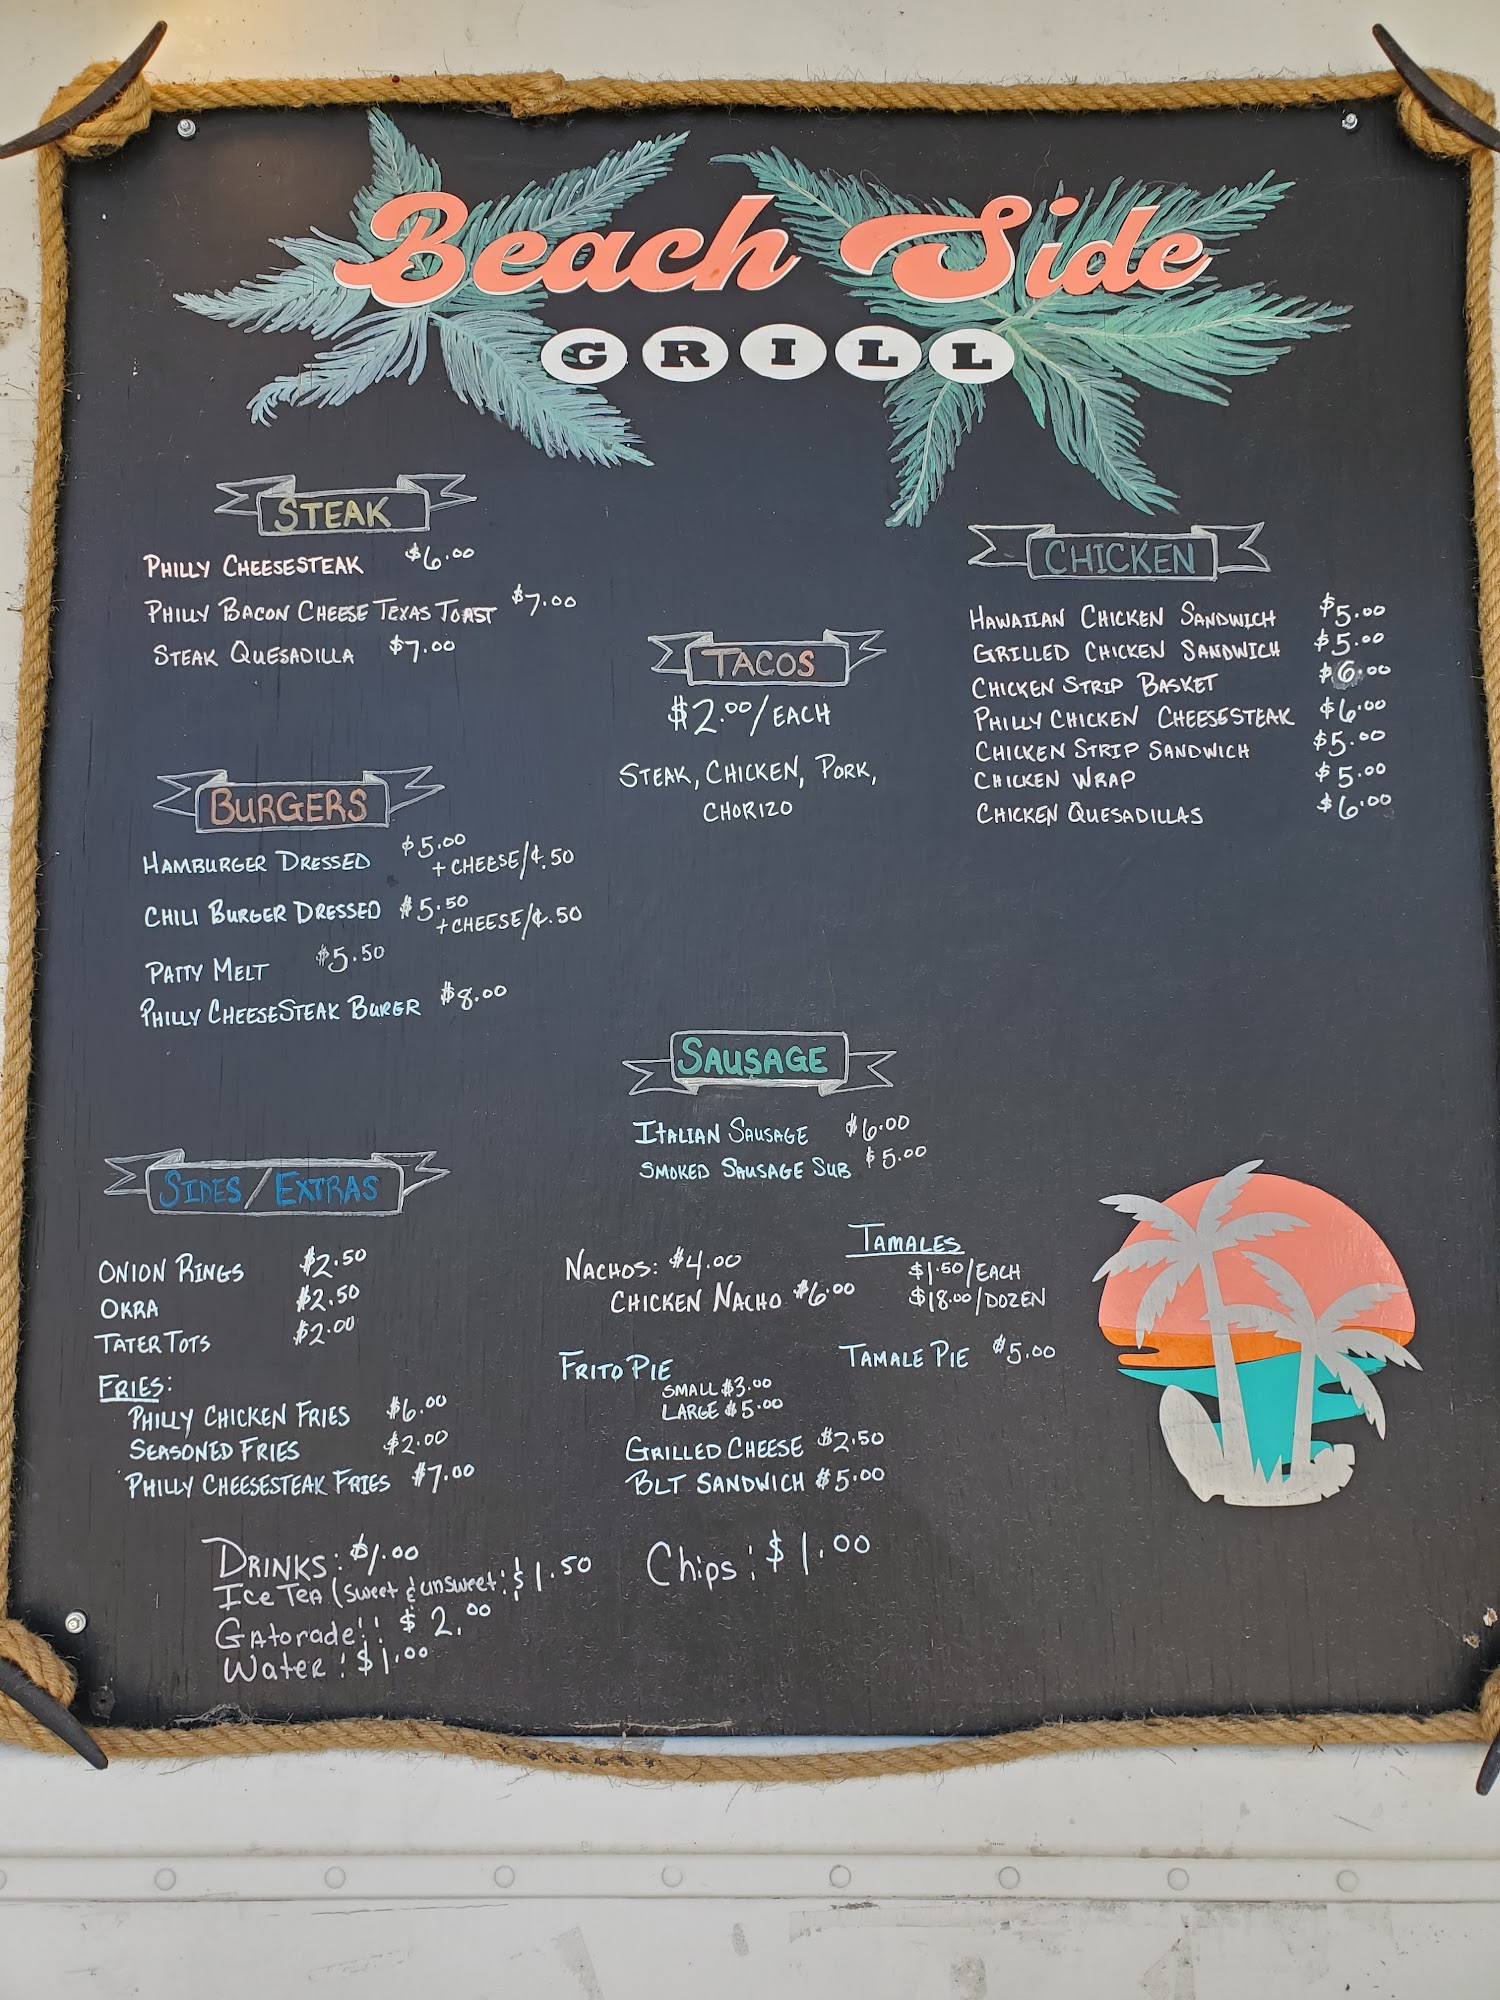 Beach Side
GRILL
STEAK
PHILLY CHEESESTEAK $6.00
PHILLY BACON CHEESE TEXAS TOAST $7.00
STEAK QUESADILLA $7.00
BURGERS
HAMBURGER DRESSED $5.00
+ CHEESE/¢.50
CHILI BURGER DRESSED $5.50
+CHEESE/¢.50
PATTY MELT $5.50
PHILLY CHEESESTEAK BURER $8.00
TACOS
$2.00/EACH
STEAK, CHICKEN, PORK,
CHORIZO
CHICKEN
HAWAIIAN CHICKEN SANDWICH $5.00
GRILLED CHICKEN SANDWICH $5.00
CHICKEN STRIP BASKET $6.00
PHILLY CHICKEN CHEESESTEAK $6.00
CHICKEN STRIP SANDWICH $5.00
CHICKEN WRAP $5.00
CHICKEN QUESADILLAS $6.00
SAUSAGE
ITALIAN SAUSAGE $6.00
SMOKED SAUSAGE SUB $5.00
SIDES/EXTRAS
ONION RINGS $2.50
OKRA $2.50
TATER TOTS $2.00
FRIES:
PHILLY CHICKEN FRIES $6.00
SEASONED FRIES $2.00
PHILLY CHEESESTEAK FRIES $7.00
NACHOS: $4.00
CHICKEN NACHO $6.00
FRITO PIE
SMALL $3.00
LARGE $5.00
GRILLED CHEESE $2.50
BLT SANDWICH $5.00
TAMALES
$1.50/EACH
$18.00/DOZEN
TAMALE PIE $5.00
DRINKS: $1.00
Ice Tea (Sweet & unsweet: $1.50
Gatorade: $2.00
Water: $1.00
Chips: $1.00